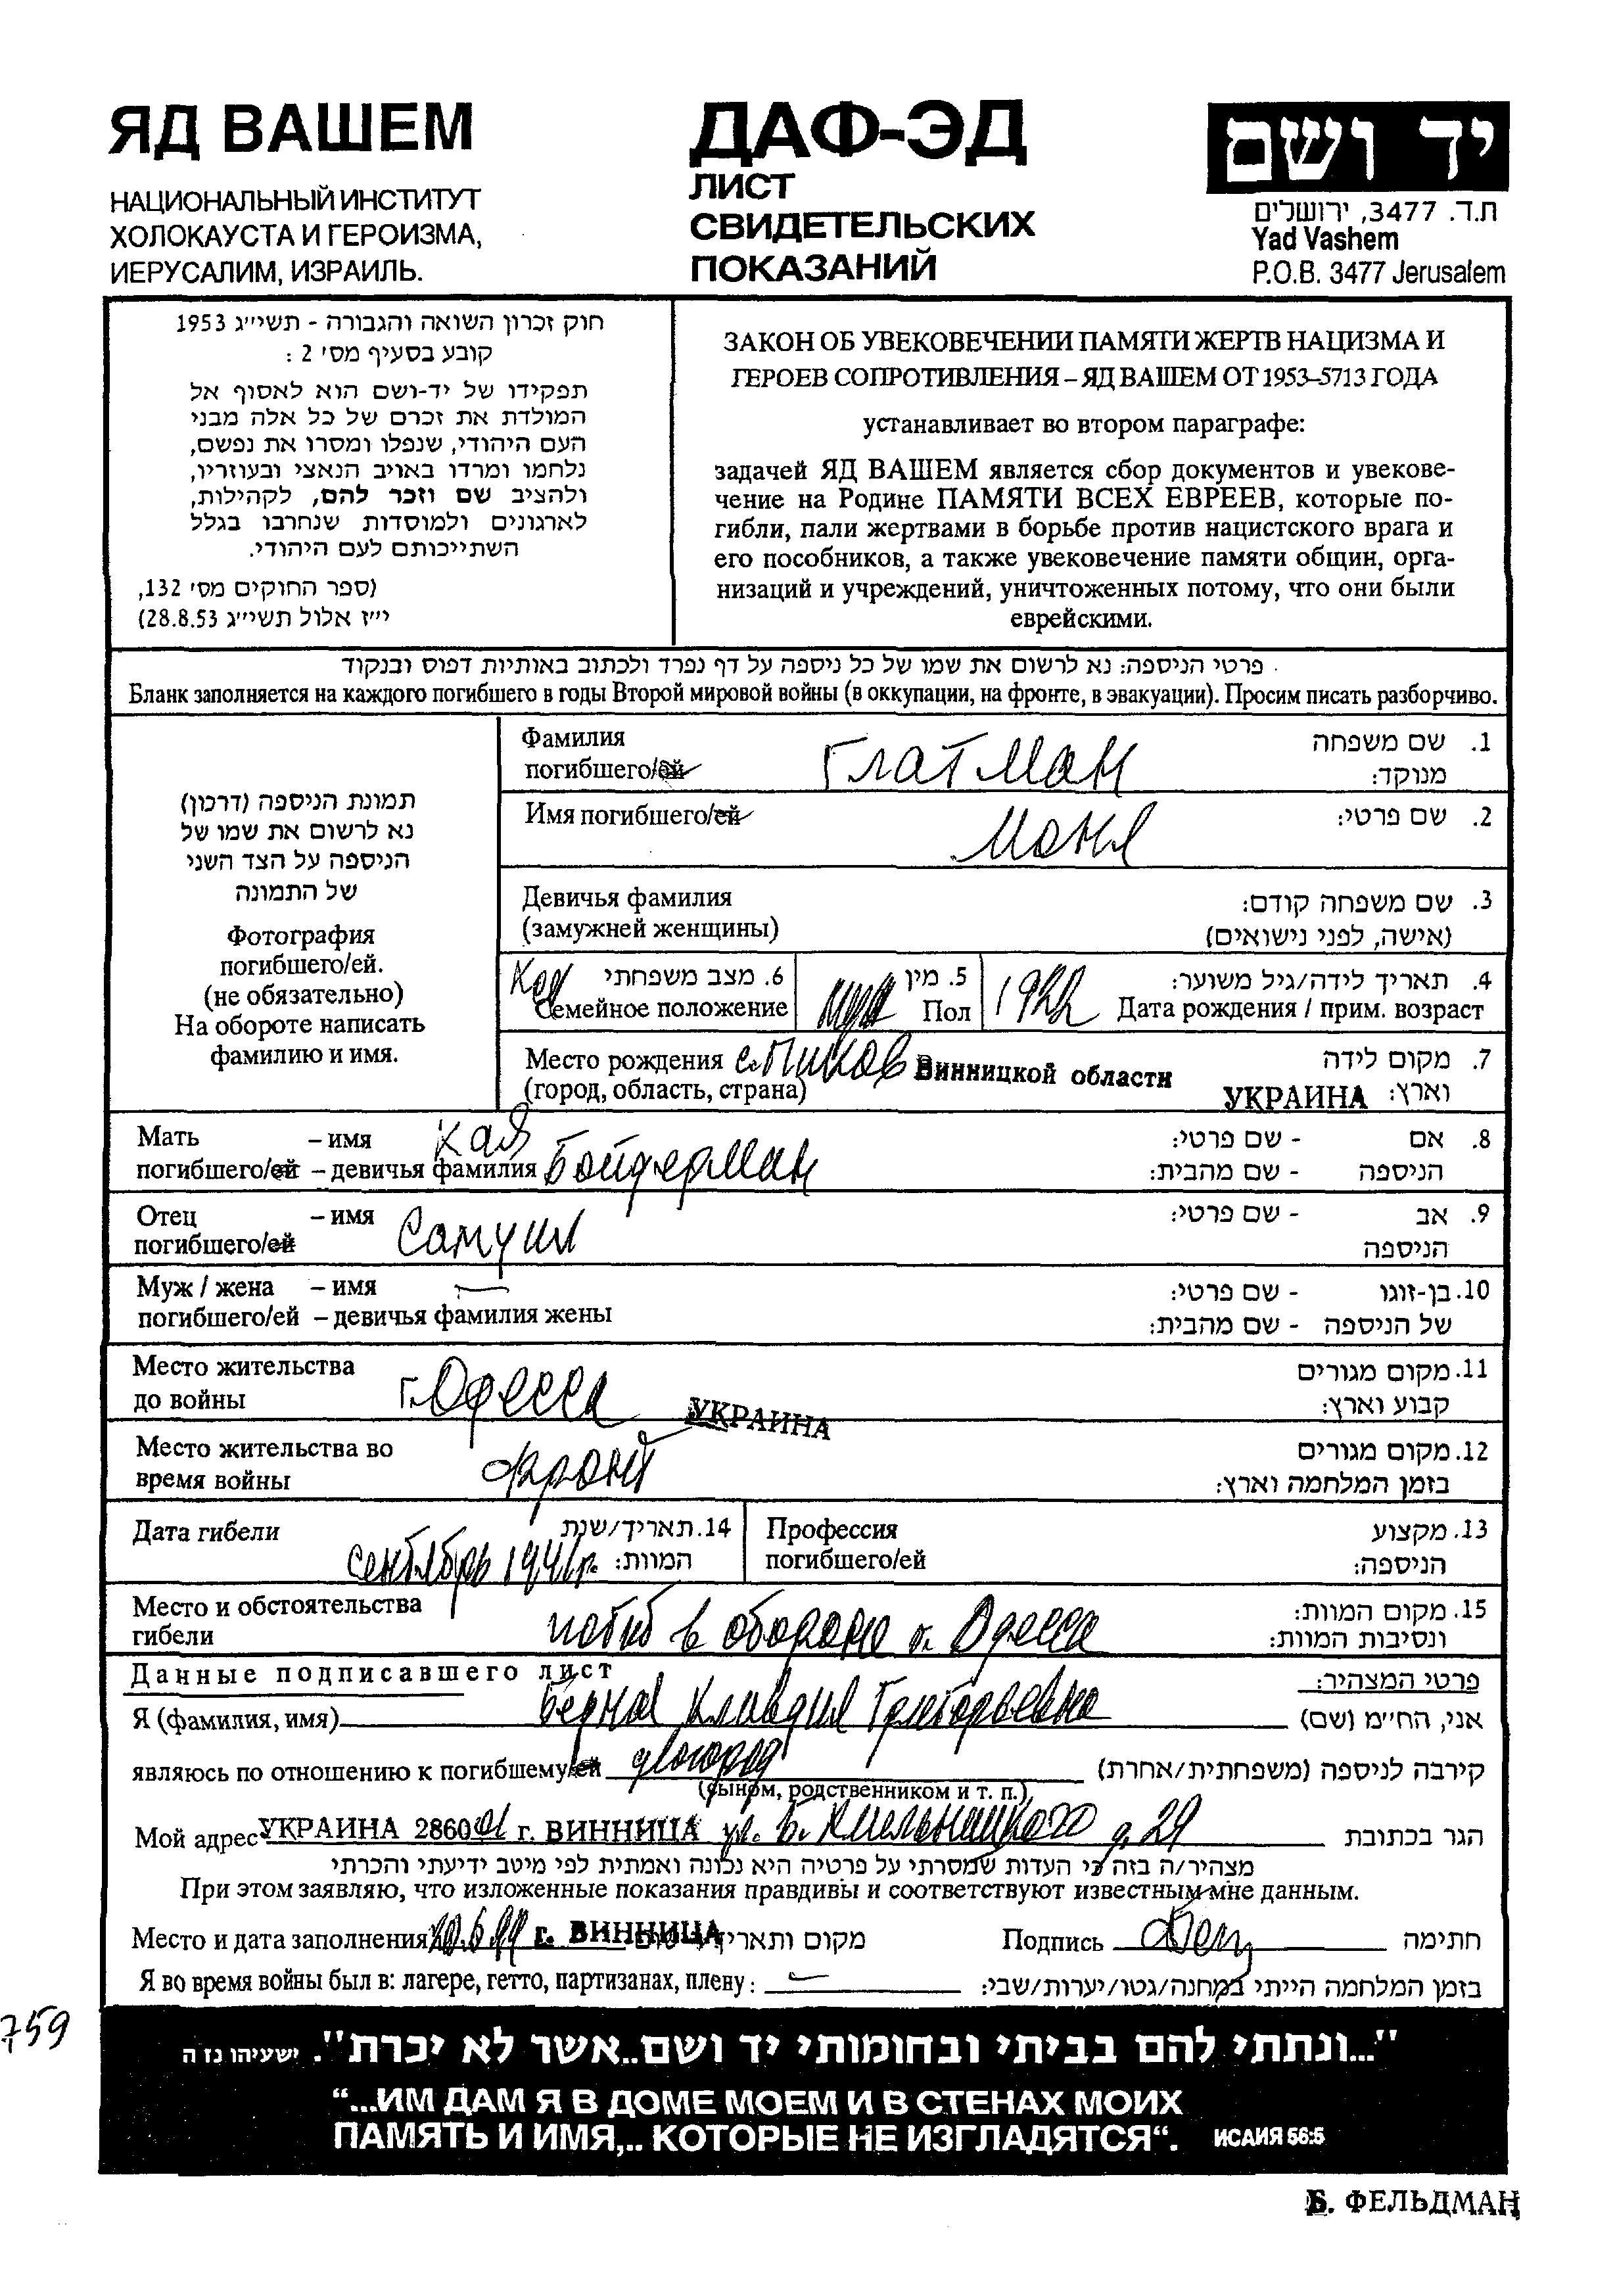 ЯД ВАШЕМ
НАЦИОНАЛЬНЫЙ ИНСТИТУТ
ХОЛОКАУСТА И ГЕРОИЗМА,
ИЕРУСАЛИМ, ИЗРАИЛЬ.
ДАФ-ЭД
ЛИСТ
СВИДЕТЕЛЬСКИХ
ПОКАЗАНИЙ
יד ושם
ת.ד. 3477, ירושלים
Yad Vashem
P.O.B. 3477 Jerusalem
חוק זכרון השואה והגבורה - תשי״ג 1953
קובע בסעיף מס׳ 2 :
תפקידו של יד-ושם הוא לאסוף אל
המולדת את זכרם של כל אלה מבני
העם היהודי, שנפלו ומסרו את נפשם,
נלחמו ומרדו באויב הנאצי ובעוזריו,
ולהציב שם וזכר להם, לקהילות,
לארגונים ולמוסדות שנחרבו בגלל
השתייכותם לעם היהודי.
(ספר החוקים מס׳ 132,
י״ז אלול תשי״ג 28.8.53)
ЗАКОН ОБ УВЕКОВЕЧЕНИИ ПАМЯТИ ЖЕРТВ НАЦИЗМА И
ГЕРОЕВ СОПРОТИВЛЕНИЯ – ЯД ВАШЕМ ОТ 1953–5713 ГОДА
устанавливает во втором параграфе:
задачей ЯД ВАШЕМ является сбор документов и увекове-
чение на Родине ПАМЯТИ ВСЕХ ЕВРЕЕВ, которые по-
гибли, пали жертвами в борьбе против нацистского врага и
его пособников, а также увековечение памяти общин, орга-
низаций и учреждений, уничтоженных потому, что они были
еврейскими.
פרטי הניספה: נא לרשום את שמו של כל ניספה על דף נפרד ולכתוב באותיות דפוס ובנקוד
Бланк заполняется на каждого погибшего в годы Второй мировой войны (в оккупации, на фронте, в эвакуации). Просим писать разборчиво.
תמונת הניספה (דרכון)
נא לרשום את שמו של
הניספה על הצד השני
של התמונה
Фотография
погибшего/ей.
(не обязательно)
На обороте написать
фамилию и имя.
Фамилия
погибшего/ей Глатман
1. שם משפחה
מנוקד:
Имя погибшего/ей Моня
2. שם פרטי:
Девичья фамилия
(замужней женщины)
3. שם משפחה קודם:
(אישה, לפני נישואים)
6. מצב משפחתי
Семейное положение
5. מין
муж Пол
4. תאריך לידה/גיל משוער:
1922 Дата рождения / прим. возраст
Место рождения с. Пиков Винницкой области
(город, область, страна) УКРАИНА
7. מקום לידה
וארץ:
Мать – имя Кая
погибшего/ей – девичья фамилия Бойдерман
8. אם - שם פרטי:
הניספה - שם מהבית:
Отец – имя Самуил
погибшего/ей
9. אב - שם פרטי:
הניספה
Муж / жена – имя —
погибшего/ей – девичья фамилия жены
10. בן-זוגו - שם פרטי:
של הניספה - שם מהבית:
Место жительства
до войны г. Одесса УКРАИНА
11. מקום מגורים
קבוע וארץ:
Место жительства во
время войны фронт
12. מקום מגורים
בזמן המלחמה וארץ:
Дата гибели сентябрь 1941г.
14. תאריך/שנת
המוות:
Профессия
погибшего/ей
13. מקצוע
הניספה:
Место и обстоятельства
гибели погиб в обороне г. Одесса
15. מקום המוות:
ונסיבות המוות:
Данные подписавшего лист
פרטי המצהיר:
Я (фамилия, имя) Клавдия Григорьевна
אני, החי״מ (שם)
являюсь по отношению к погибшему/ей
קירבה לניספה (משפחתית/אחרת)
(сыном, родственником и т. п.)
Мой адрес УКРАИНА 286001 г. ВИННИЦА ул. Б. Хмельницкого д. 29
הגר בכתובת
מצהיר/ה בזה כי העדות שמסרתי על פרטיה היא נכונה ואמתית לפי מיטב ידיעתי והכרתי
При этом заявляю, что изложенные показания правдивы и соответствуют известным мне данным.
Место и дата заполнения г. ВИННИЦА מקום ותאריך
Подпись חתימה
Я во время войны был в: лагере, гетто, партизанах, плену: —
בזמן המלחמה הייתי במחנה/גטו/יערות/שבי:
759
"...ונתתי להם בביתי ובחומותי יד ושם..אשר לא יכרת". ישעיהו נז ה
“...ИМ ДАМ Я В ДОМЕ МОЕМ И В СТЕНАХ МОИХ
ПАМЯТЬ И ИМЯ,.. КОТОРЫЕ НЕ ИЗГЛАДЯТСЯ“. ИСАИЯ 56:5
Б. ФЕЛЬДМАН